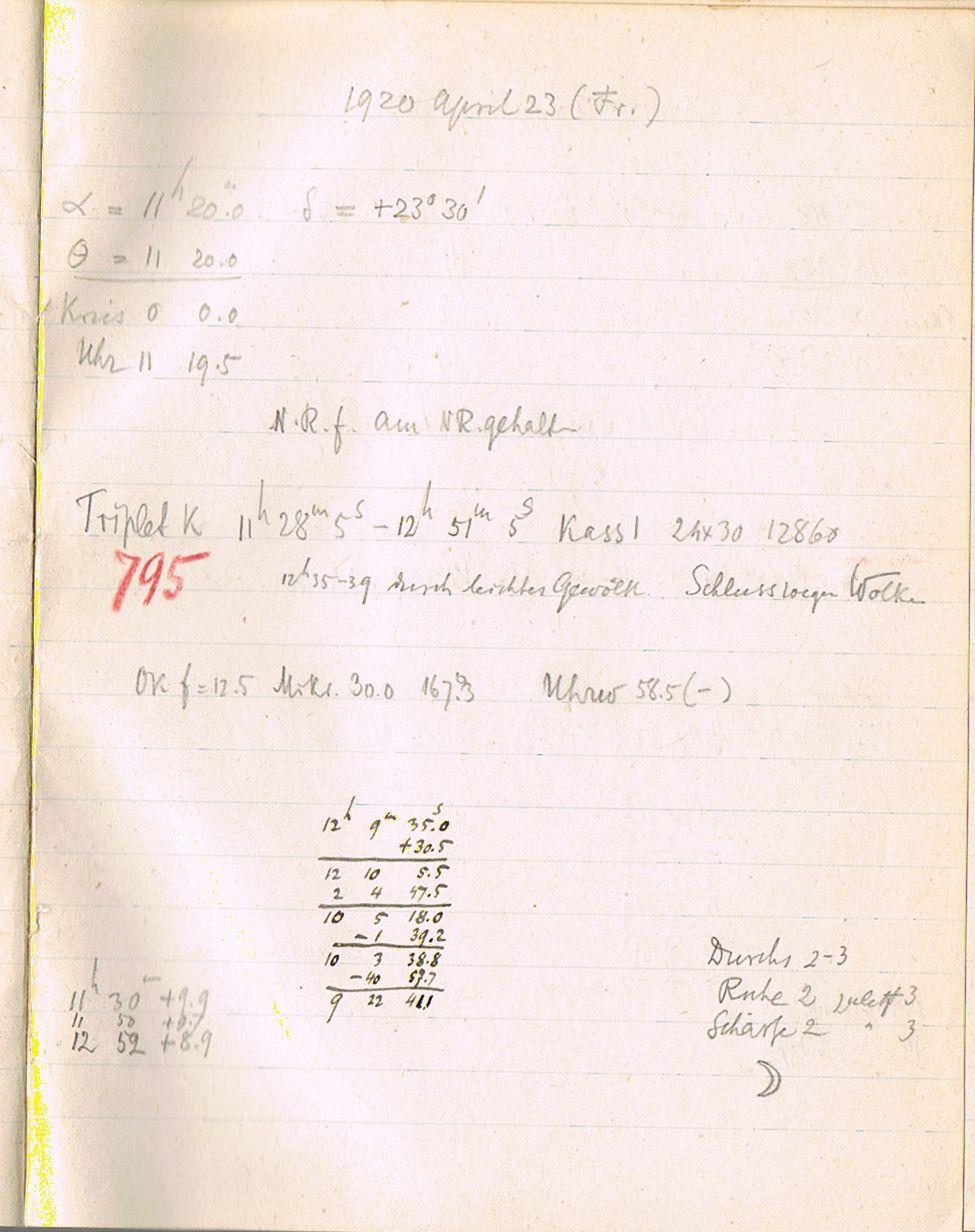 1920 April 23 (Fr.)
α = 11ʰ 20ᵐ.0 δ = +23° 30'
θ = 11 20.0
Kreis 0 0.0
Uhr 11 19.5
N.R.f. am NR. gehalten
Triplet K 11ʰ 28ᵐ 5ˢ – 12ʰ 51ᵐ 5ˢ Kass 1 24x30 12860
795 12ʰ35–39 durch leichtes Gewölk. Schluss wegen Wolken
OK f = 12.5 Mikr. 30.0 167.3 Uhrw 58.5 (-)
12ʰ 9ᵐ 35.0ˢ
+30.5
12 10 5.5
2 4 47.5
10 5 18.0
-1 39.2
10 3 38.8
-40 57.7
9 22 41.1
11ʰ 30 +9.9
11 50
12 52 +8.9
Durchs 2-3
Ruhe 2 zuletzt 3
Schärfe 2 " 3